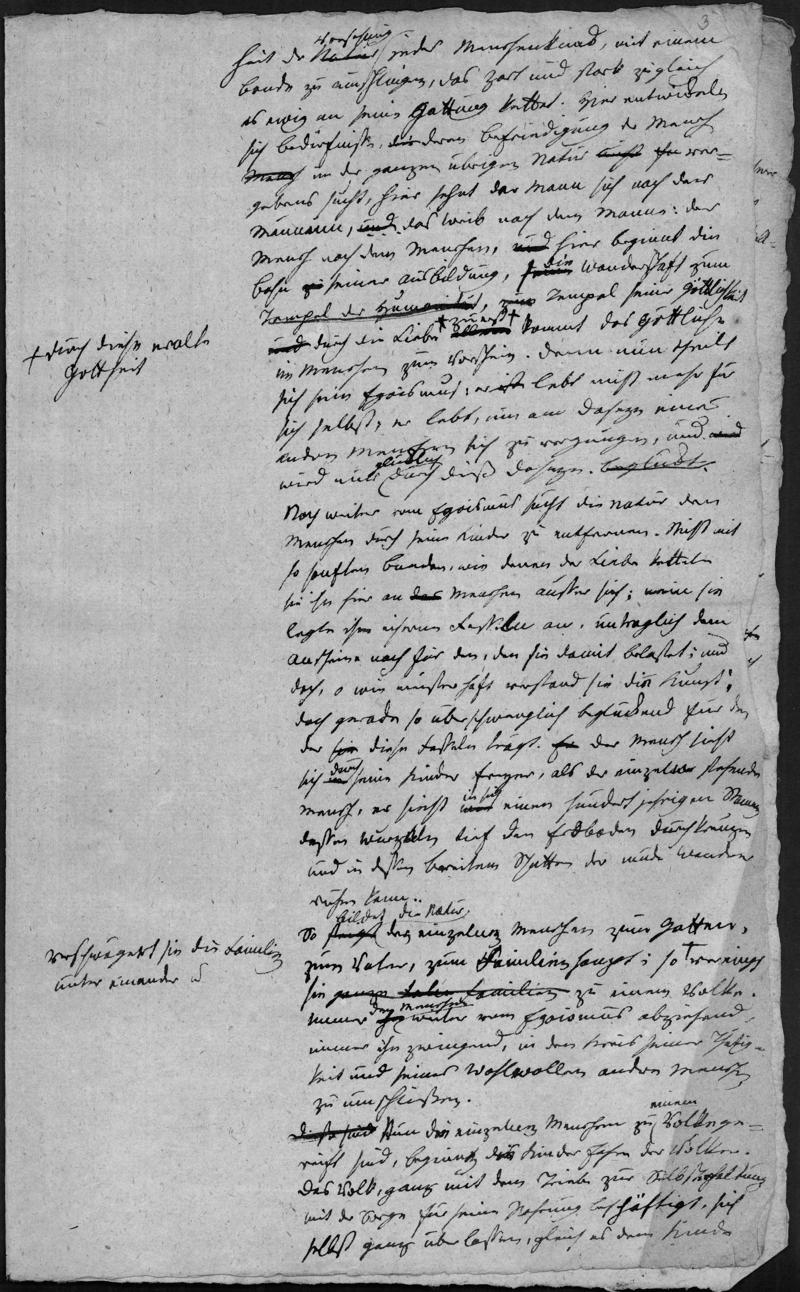 3
Vorsehung
heit der Natur jedes Menschenkind, mit einem
bande zu umschlingen, das zart und stark zugleich
es ewig an seine Gattung kettet. Hier entwickeln
sich bedürfnisse, die deren befriedigung der Mensch
Mensch in der ganzen übrigen Natur nicht ver=
gebens sucht, hier sehnt der Mann sich nach dem
Manne, und das Weib nach dem Manne: der
Mensch nach dem Menschen, und hier beginnt die
die
bahn zu seiner ausbildung, seine Wanderschaft zum
Tempel der Humanität, zum Tempel seiner Göttlichkeit
† zuerst †
und durch die Liebe kommt das Göttliche
† durch diese uralte
Gottheit
im Menschen zum Vorschein. Denn nun theilt
sich sein Egoismus; er ist lebt nicht mehr für
sich selbst, er lebt, um am Daseyn eines
andern Menschen sich zu vergnügen, und wird
glücklich
wird nur durch dieß Daseyn. beglückt.
Noch weiter vom Egoismus sucht die Natur den
Menschen durch seine Kinder zu entfernen. Nicht mit
so sanften banden, wie denen der Liebe kettete
sie ihn hier an das Menschen ausser sich; nein sie
legte ihm eiserne Fesseln an, unträglich dem
Anscheine nach für den, den sie damit belastet; und
doch, o wie meisterhaft verstand sie die Kunst;
doch gerade so überschwenglich beglückend für den
der sie diese Fesseln trägt. Er der Mensch sieht
durch
sich in seine Kinder freyer, als der einzelne stehende
in sich
Mensch, er sieht einen hundertjährigen Stamm
dessen Wurzeln tief den Erdboden durchkreuzen
und in dessen breitem Schatten der müde Wanderer
ruhen kann.
bildet die Natur
So den einzelnen Menschen zum Gatten,
zum Vater, zum Familienhaupt; so † vereinigt
verschwägert sie die Familien
unter einander u
sie ganze Familien zu einem Volke.
den Menschen
Immer weiter vom Egoismus abziehend,
immer ihn zwingend, in den Kreis seiner Thätig=
keit und seines Wohlwollens andre Menschen
zu umschließen.
einem
diese sind Nun die einzelnen Menschen zu Volke ge=
reift sind, beginnt das Kinder Jahre der Völker.
Das Volk, ganz mit dem Triebe zur Selbsterhaltung
mit der Sorge für seine Nahrung beschäftigt, sich
selbst ganz überlassen, gleich es dem Kinde